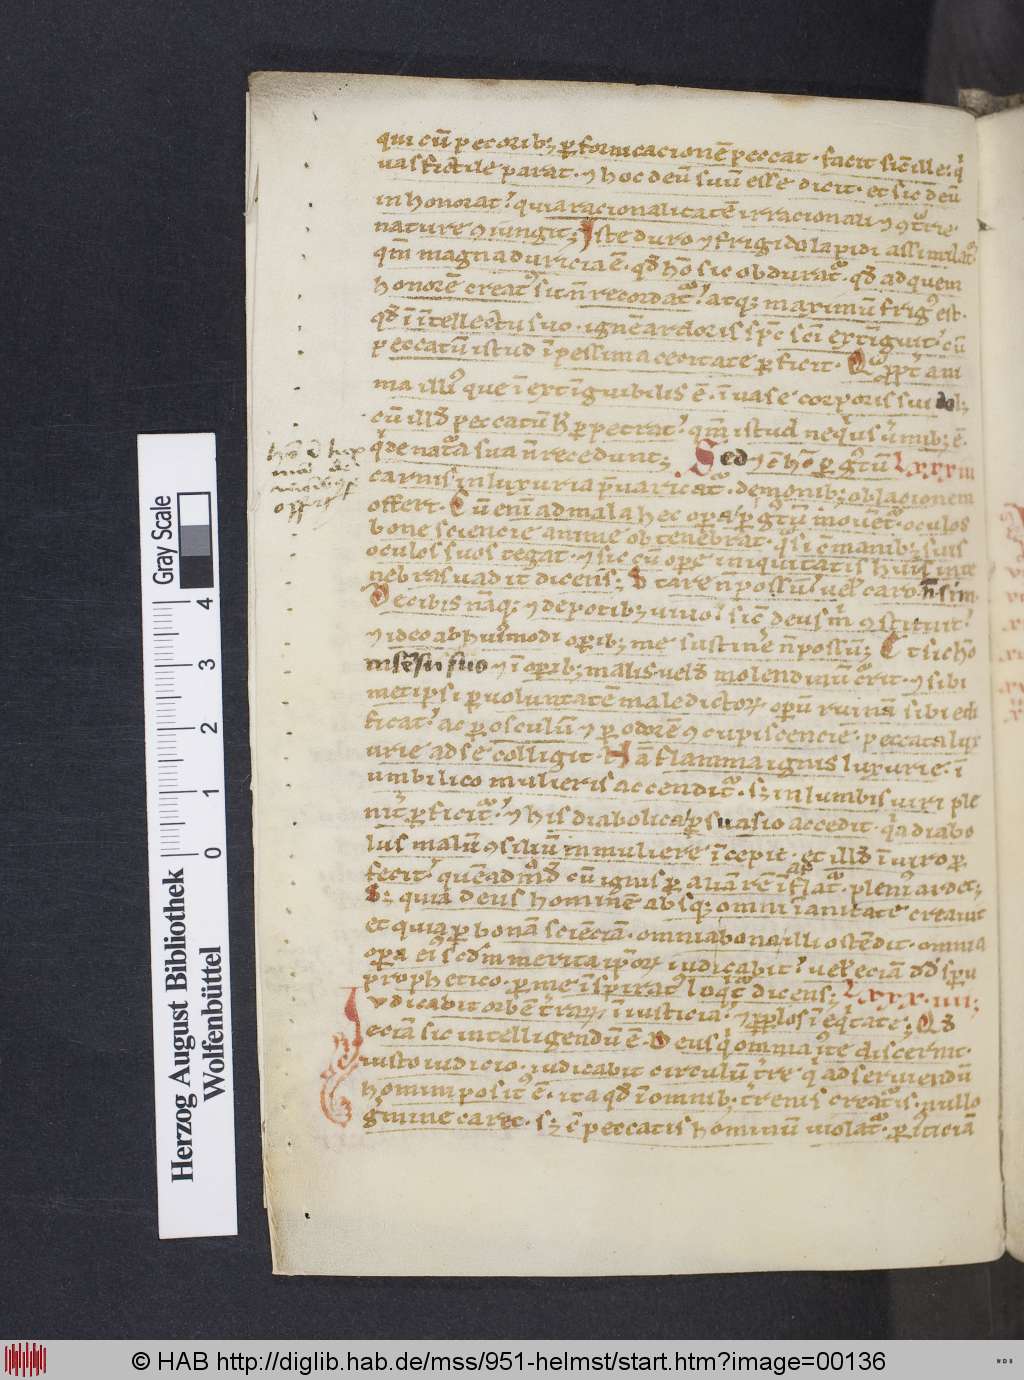 qui cū pecorib; ꝑ fornicacionē peccat · facit sic̄ ille · q̇
uas fictile parat · ⁊ hoc deū suū esse dicit · et sic deū
inhonorat · quia racionalitatē irracionali ⁊ ꝯtͣrie
nature ꝯiungit; Iste duro ⁊ frigido lapidi assimilat᷑
qm̄ magna duricia ē · qđ hō sic obdurat᷑ · qđ ad quem
honorē creatꝰ sit n̄ recordat᷑ · atq; maximū frigꝰ est ·
qđ ī intellectu suo · ignē ardoris sp̄c sc̄i extīguit · cū
peccatū istud ī pessima cecitate ꝑficit · Qͣꝓpt̄ ani
ma illiꝰ que īextīguibilis ē · ī uase corporis sui dol;
cū illđ peccatū ꝑpetrat · qm̄ istud neq̇us ūmib; ē
q̇ de natͣa sua n̄ recedunt; Sed ⁊ ē hō ꝑ gͧtū LXXXIII
carnis in luxuria p̄uaricat᷑ · demonib; oblacionem
offert · Cū eni ad mala hec oꝑa ꝑ gͧtū mouet᷑ · oculos
bone sciencie anime obtenebrat · qͣsi cē manib; suis
oculos suos tegat · ⁊ sic cū oꝑe iniquitatis huiꝰ in te
nebras uadit dicens; Stare n̄ possū · uel caro n̄ sim
De cibis nāq; ⁊ de potib; uiuo · sic deus m̄ ꝯstituit ·
⁊ ideo ab huiꝰmodi oꝑib; me sustinē n̄ possū; Et sic hō
in sēsu suo ⁊ ī oꝑib; malis uelđ molendinū erit · ⁊ sibi
metipsi ꝑ uoluntatē maledictoꝝ oꝑū ruinā sibi edi
ficat · ac ꝑ osculū ⁊ ꝑ odorē ꝯcupiscencie · peccata lux
urie ad se colligit · Nā flamma ignis luxurie · ī
umbilico mulieris accendit᷑ · s; in lumbis uiri ple
nit̄ ꝑficit᷑ · ⁊ his diabolica ꝑsuasio accedit · q̇a diabo
lus malū ꝯsiliū in muliere īcepit · et illđ ī uiro ꝑ
fecit · quēadmodū cū ignis ꝑ aliā rē īflat᷑ · pleniꝰ ardet;
S; quia deus hominē absq; omni īanitate creauit
et quia ꝑ bonā sciēciā · omnia bona illi ostēdit · omnia
oꝑa eiꝰ scđm merita ip̄oꝝ iudicabit · uel eciā dđ sp̄u
prophetico · ꝑ me īspiratꝰ loq̇t᷑ dicens; LXXXIIII;
Iudicabit orbē t̄raꝝ ī iusticia · ⁊ pp̄los ī eq̇tate; Qđ
eciā sic intelligendū ē · Deus q̇ omnia iuste discernit ·
iusto iudicio · iudicabit circulū t̄re · q̇ ad seruiendū
homini positꝰ ē · ita qđ ī omnib; t̄renis creatͧis · nullo
gͥmine caret · s; ē peccatis hominū uiolat᷑ · ꝑ iticiā
© HAB http://diglib.hab.de/mss/951-helmst/start.htm?image=00136
Herzog August Bibliothek
Wolfenbüttel
Gray Scale
0 1 2 3 4